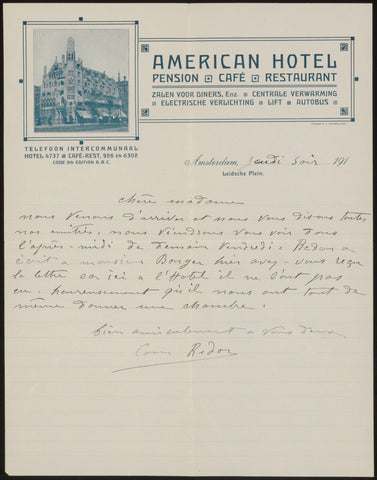 AMERICAN HOTEL
PENSION CAFÉ RESTAURANT
ZALEN VOOR DINERS, Enz. CENTRALE VERWARMING
ELECTRISCHE VERLICHTING LIFT AUTOBUS
TELEFOON INTERCOMMUNAAL
HOTEL 4737 CAFÉ-REST. 926 EN 6302
CODE 5th EDITION A.B.C.
Amsterdam, Jeudi Soir 191
Leidsche Plein.
Chère madame
nous venons d'arriver et nous vous disons toutes
nos amitiés, nous viendrons vous voir dans
l'après-midi de demain vendredi. Redon a
écrit a monsieur Bonger hier avez-vous reçu
la lettre car ici a l'Hotel il ne l'ont pas
eu. heureusement qu'ils nous ont tout de
même donner une chambre.
bien amicalement a vous deux
Cam Redon